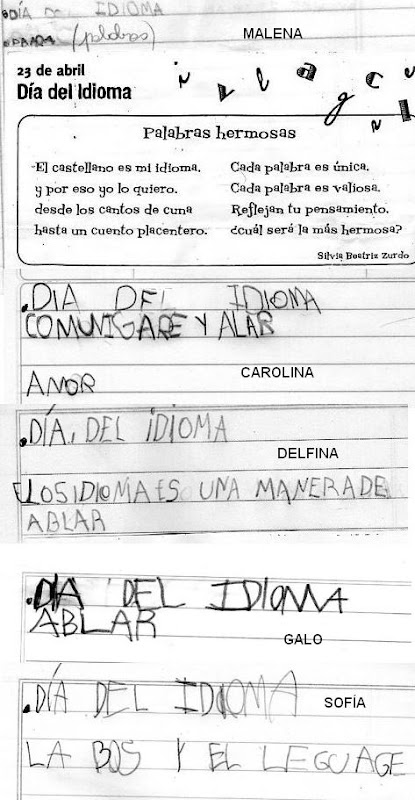 .DÍA DEL IDIOMA
(palabras)
MALENA
23 de abril
Día del Idioma
Palabras hermosas
El castellano es mi idioma,
y por eso yo lo quiero.
desde los cantos de cuna
hasta un cuento placentero.
Cada palabra es única.
Cada palabra es valiosa.
Reflejan tu pensamiento.
¿cuál será la más hermosa?
Silvia Beatriz Zurdo
.DIA DEL IDIOMA
COMUNIGARE Y ALAR
AMOR
CAROLINA
.DÍA. DEL IDIOMA
DELFINA
LOS IDIOMA ES UNA MANERA DE
ABLAR
.DIA DEL IDIOMA
ABLAR
GALO
.DÍA DEL IDIOMA
SOFÍA
LA BOS Y EL LEGUAGE